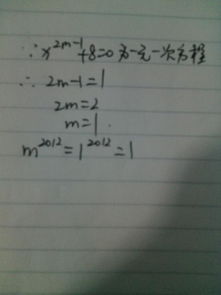 ∵x^{2m-1}+8=0为一元一次方程
∴2m-1=1
2m=2
m=1.
m^{2012}=1^{2012}=1